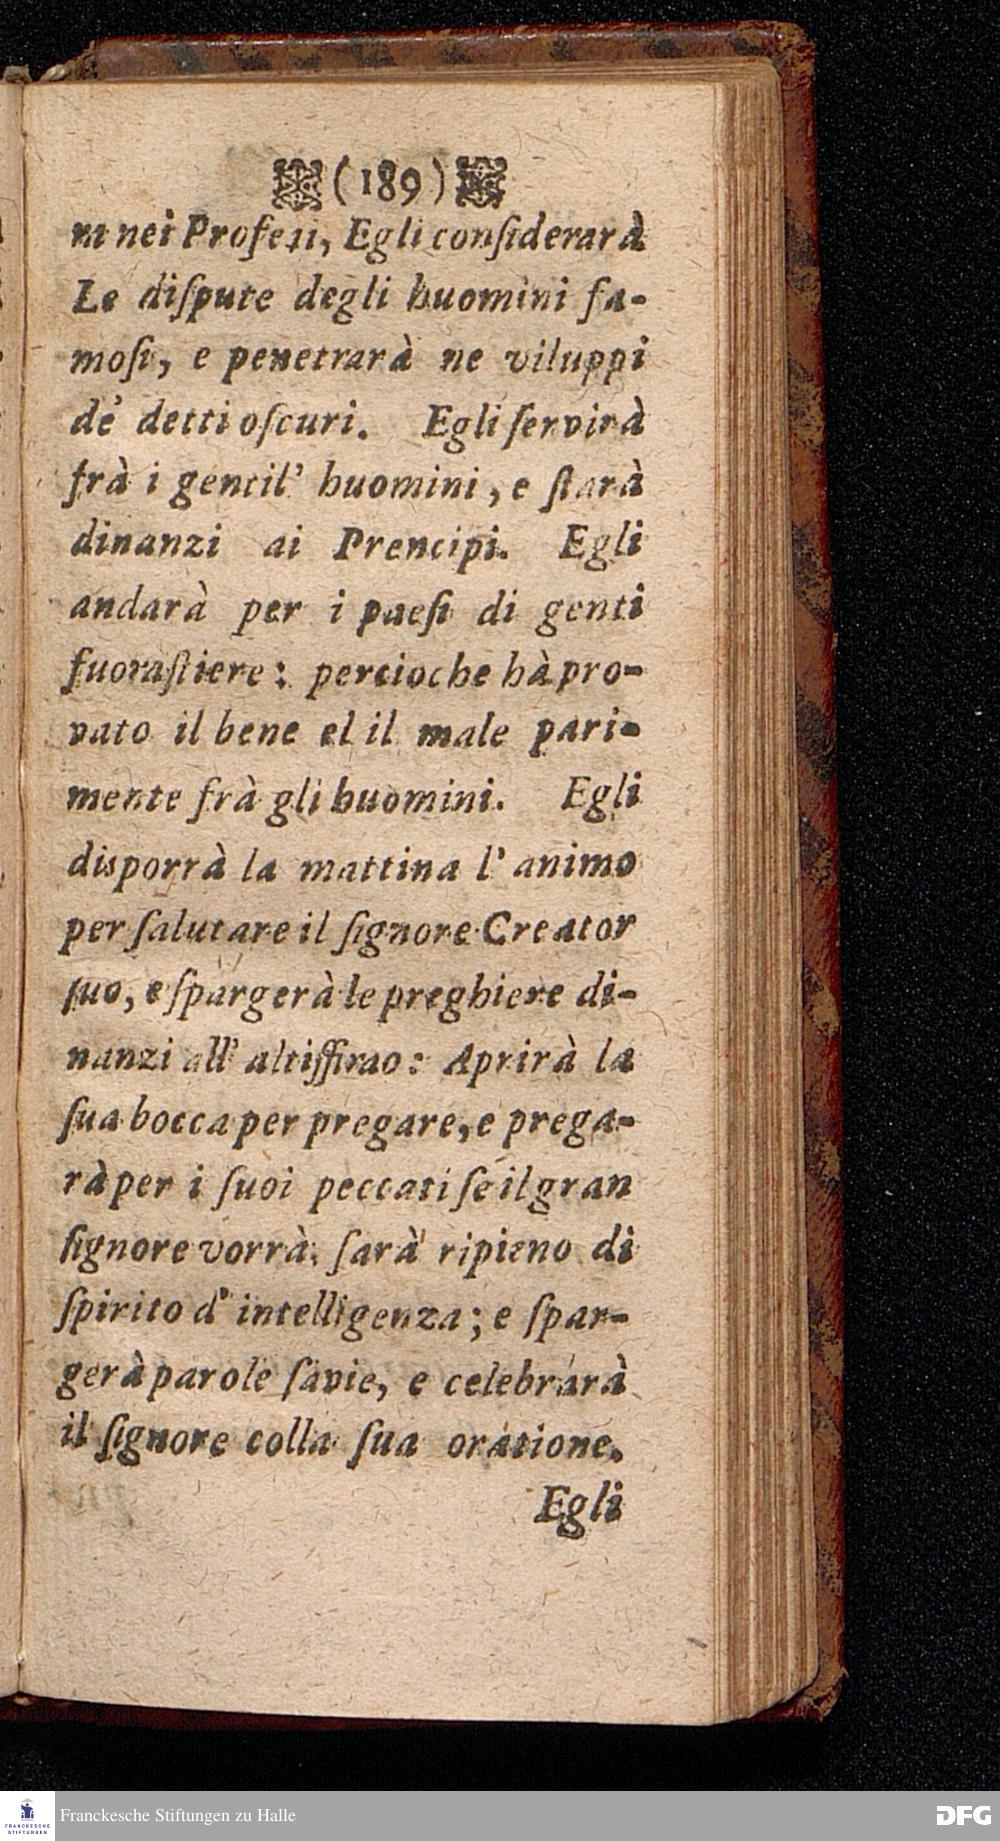 (189)
ra nei Profeti, Egli conſiderarà
Le diſpute degli huomini fa-
moſi, e penetrarà ne viluppi
dé detti oſcuri. Egli ſervirà
frà i gentil' huomini, e ſtarà
dinanzi ai Prencipi. Egli
andarà per i paeſi di genti
fuoraſtiere: percioche hà pro-
vato il bene el il male pari-
mente frà gli huomini. Egli
disporrà la mattina l' animo
per ſalutare il ſignore Creator
ſuo, e ſpargerà le preghiere di-
nanzi all' altiſſimo: Aprirà la
ſua bocca per pregare, e prega-
rà per i ſuoi peccati ſe il gran
ſignore vorrà. ſarà ripieno di
ſpirito d' intelligenza; e ſpar-
gerà parole ſavie, e celebrarà
il ſignore colla ſua oratione.
Egli
FRANCKESCHE
STIFTUNGEN
Franckesche Stiftungen zu Halle
DFG